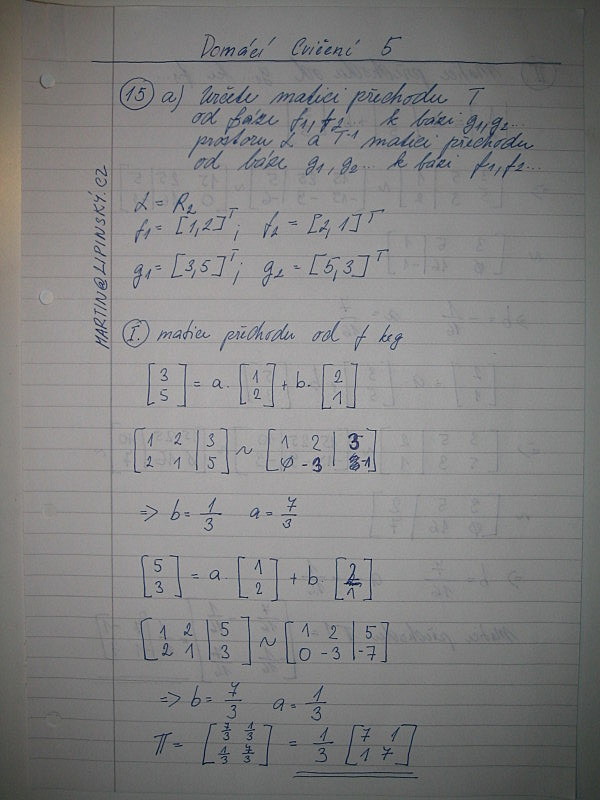 Domácí Cvičení 5
15 a) Určete matici přechodu T
od báze f1, f2... k bázi g1, g2...
prostoru L a T-1 matici přechodu
od báze g1, g2... k bázi f1, f2...
MARTIN@LIPINSKY.CZ
L = R2
f1 = [1,2]T; f2 = [2,1]T
g1 = [3,5]T; g2 = [5,3]T
I. matici přechodu od f k g
[3 5] = a. [1 2] + b. [2 1]
[1 2 | 3
2 1 | 5] ~ [1 2 | 3
0 -3 | -1]
=> b = 1/3 a = 7/3
[5 3] = a. [1 2] + b. [2 1]
[1 2 | 5
2 1 | 3] ~ [1 2 | 5
0 -3 | -7]
=> b = 7/3 a = 1/3
T = [7/3 1/3
1/3 7/3] = 1/3 [7 1
1 7]